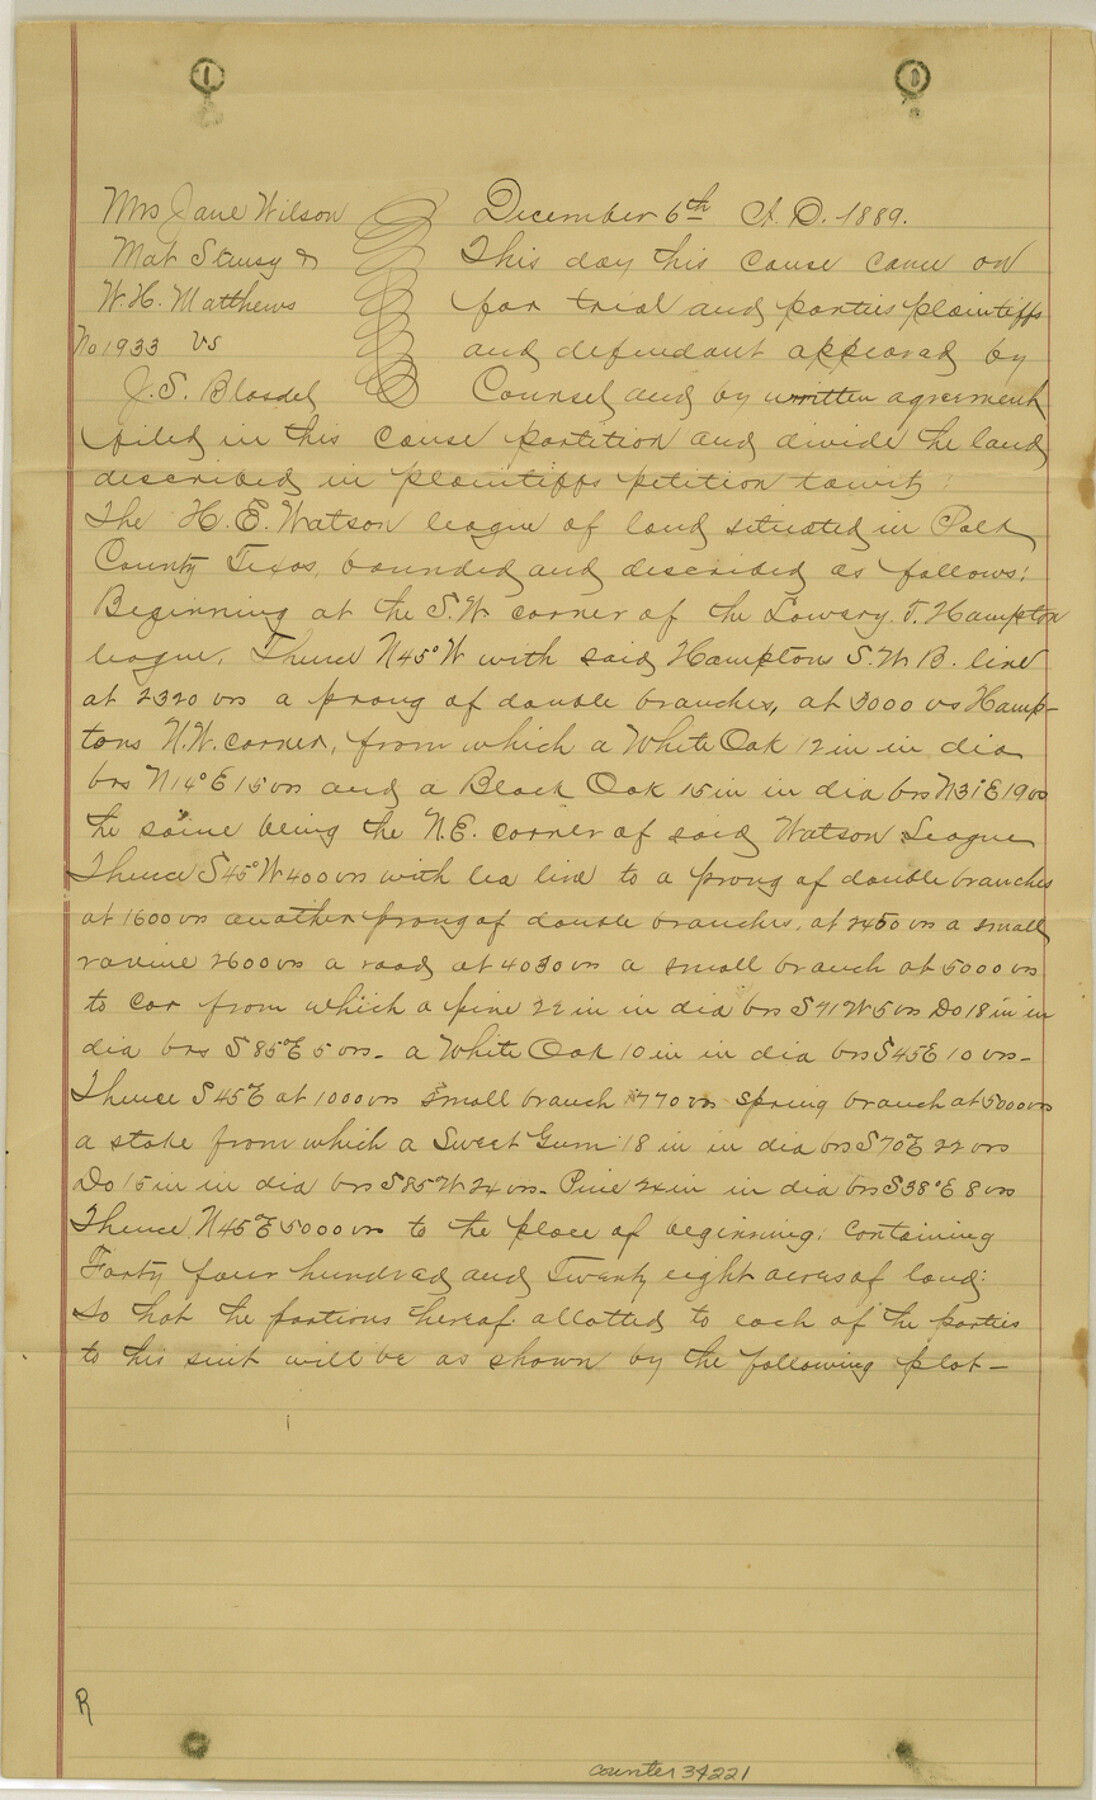 Mrs Jane Wilson
Mat Stussy &
W. H. Matthews
No 1933 vs
J. S. Blasdel
December 6th A. D. 1889.
This day this cause came on
for trial and parties plaintiffs
and defendant appeared by
Counsel and by written agreement
filed in this cause partition and divide the land
described in plaintiffs petition towit:
The H. E. Watson league of land situated in Polk
County Texas, bounded and described as follows:
Beginning at the S.W. corner of the Lowery T. Hampton
league. Thence N45°W with said Hamptons S.W.B. line
at 2320 vrs a prong of double branches, at 5000 vs Hamp-
tons N.W. corner, from which a White Oak 12 in in dia
brs N14°E 15 vrs and a Black Oak 15 in in dia brs N31°E 19 vrs
the same being the N.E. corner of said Watson League
Thence S45°W 400 vrs with lea line to a prong of double branches
at 1600 vrs another prong of double branches, at 2450 vrs a small
ravine 2600 vrs a road at 4030 vrs a small branch at 5000 vrs
to cor from which a pine 22 in in dia brs S71W 5 vrs Do 18 in in
dia brs S85°E 5 vrs- a White Oak 10 in in dia brs S45E 10 vrs-
Thence S45°E at 1000 vrs small branch 1770 vrs spring branch at 5000 vrs
a stake from which a Sweet Gum 18 in in dia brs S70°E 22 vrs
Do 15 in in dia brs S85°W 24 vrs- Pine 24 in in dia brs S38°E 8 vrs
Thence N45°E 5000 vrs to the place of beginning; containing
Forty four hundred and Twenty eight acres of land:
So that the portions thereof allotted to each of the parties
to this suit will be as shown by the following plat-
R
counter 34221